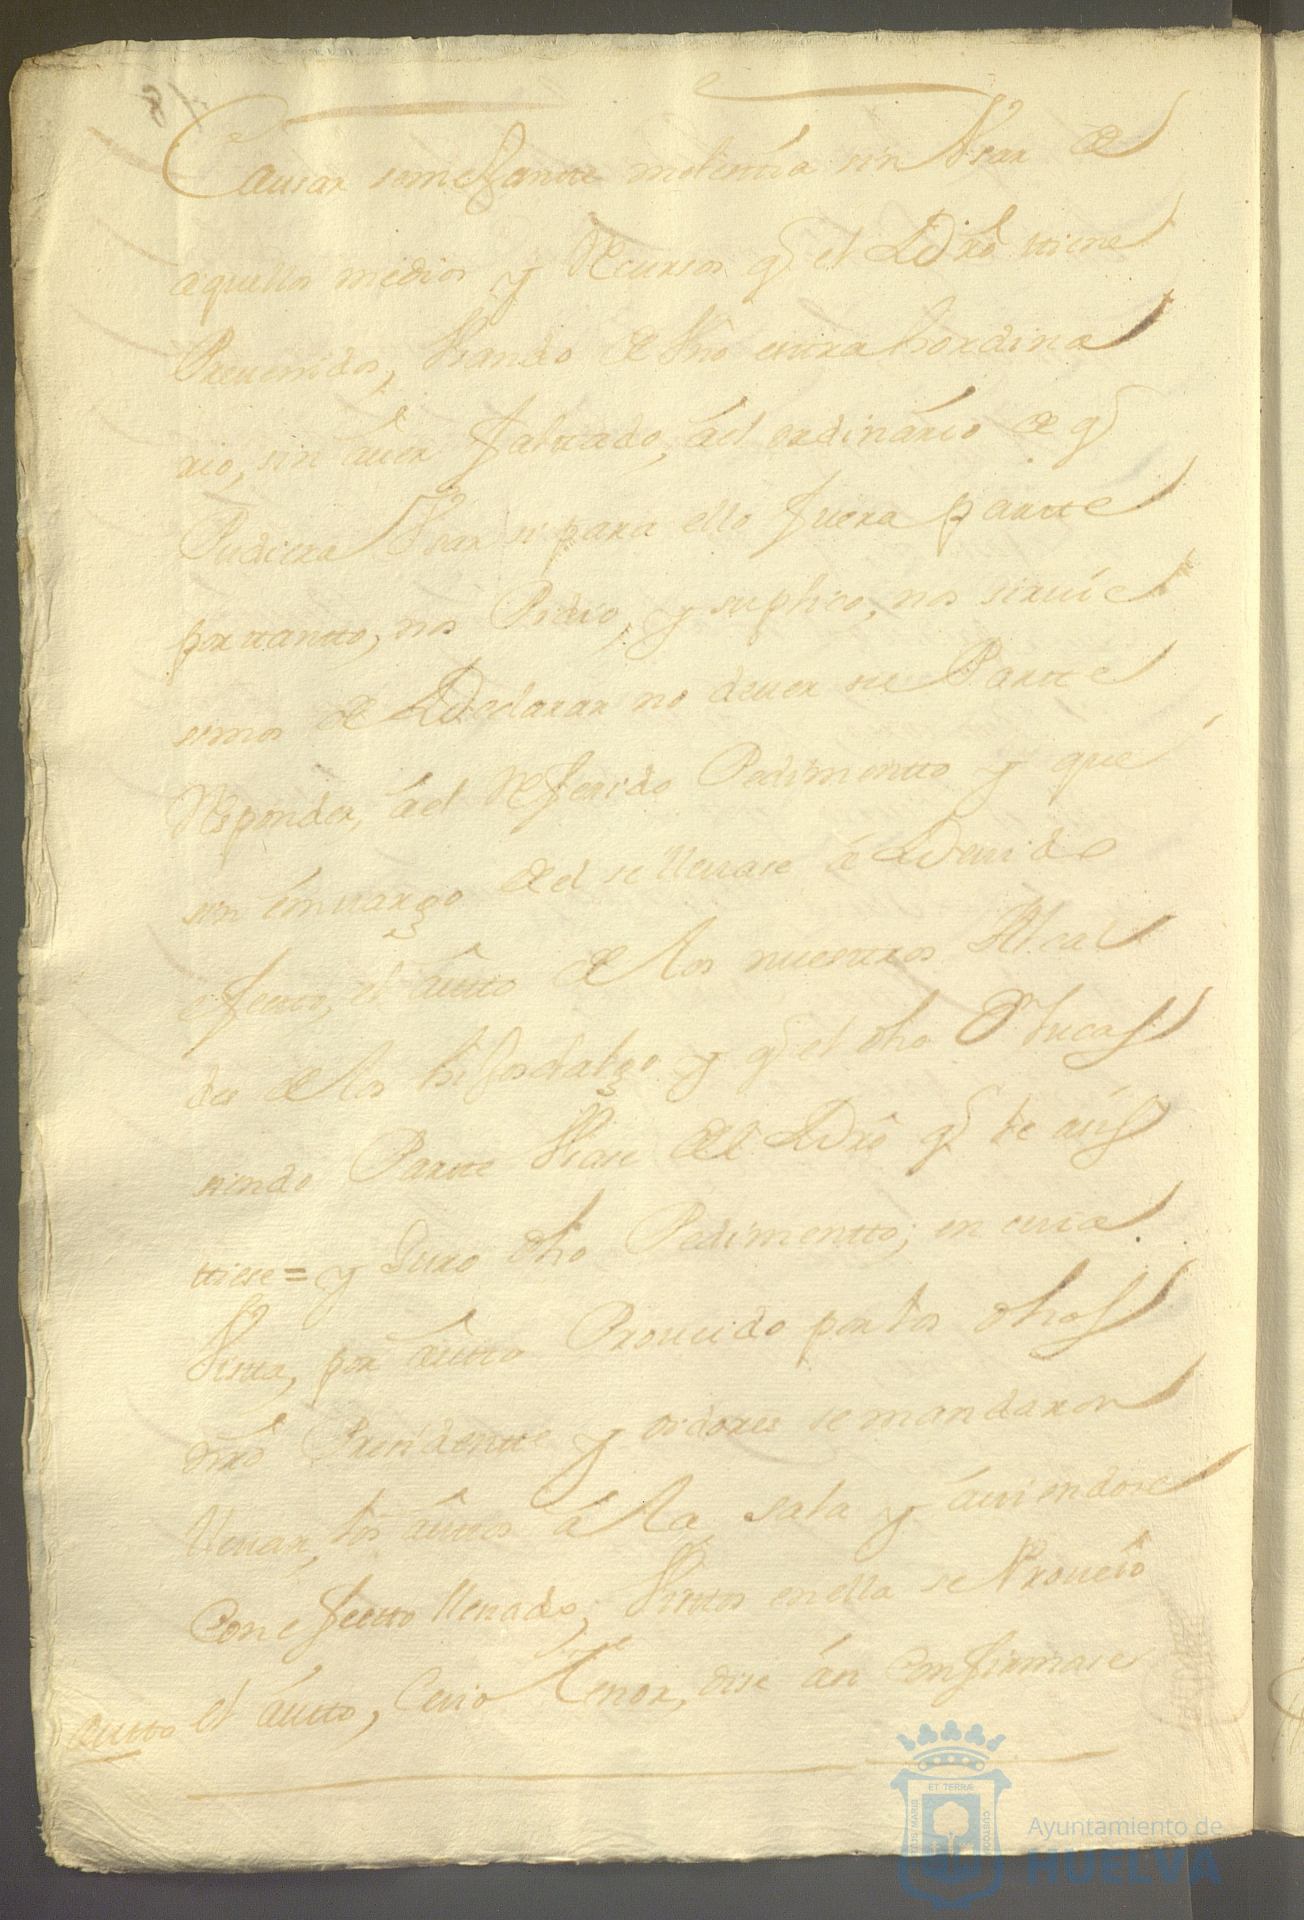 Causar semejantte molestia sin Vsar de
aquellos medios y Recursos q̃ el Dr̃o ttiene
Preuenidos, Vsando de Vno extrahordina
rio, sin áuer faltado, ádl ordinário de q̃
Pudiera Vsar si para ello fuera partte
por ttantto, nos Pidio, y suplico, nos siruie
semos de Declarar no deuer su Partte
Responder, ádl Referido Pedimentto y que
sin émuargo del se lleuase á Deuido
efectto, el áutto de los nuesttros Alcal
des de los hijosdalgo y q̃ el dho Dn Lucas
siendo Partte Vsase del Dr̃o q̃ le asis
ttiese = y Juro dho Pedimentto; en cuia
Vistta, por áutto Proueido por los dhos
nr̃o Presidentte y oidores se mandaron
lleuar, los áuttos á la sala y áuiendose
Con efectto lleuado; Visttos en ella se Proueió
autto el áutto, Cuio tenor, dise ási Confirmase
ET TERRÆ
PORTUS MARIS
CUSTODIA
Ayuntamiento de
HUELVA